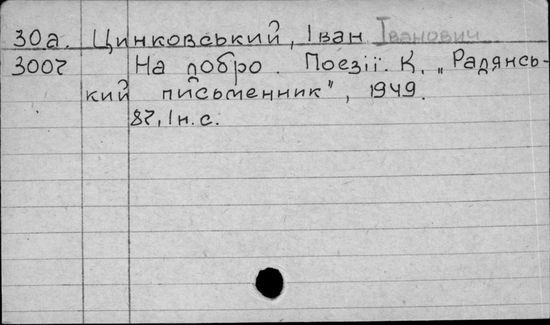 30а. Цинковський, Іван Іванович
3007 На добро. Поезії. К. „Радянсь-
кий письменник", 1949.
87, Iн. с.